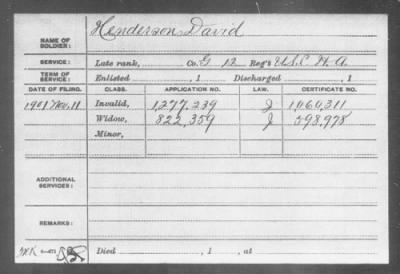 NAME OF SOLDIER: Henderson David
SERVICE: Late rank, Co. G 12 Reg't U.S.C. H A.
TERM OF SERVICE: Enlisted , 1 Discharged , 1
DATE OF FILING. CLASS. APPLICATION NO. LAW. CERTIFICATE NO.
1901 Nov. 11 Invalid, 1,277,239 J 1,060,311
Widow, 822,359 J 598,978
Minor,
ADDITIONAL SERVICES:
REMARKS:
Died , 1 , at